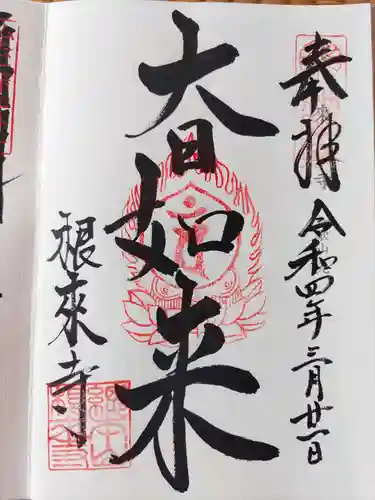 奉拝
令和四年三月廿一日
大日如来
根来寺